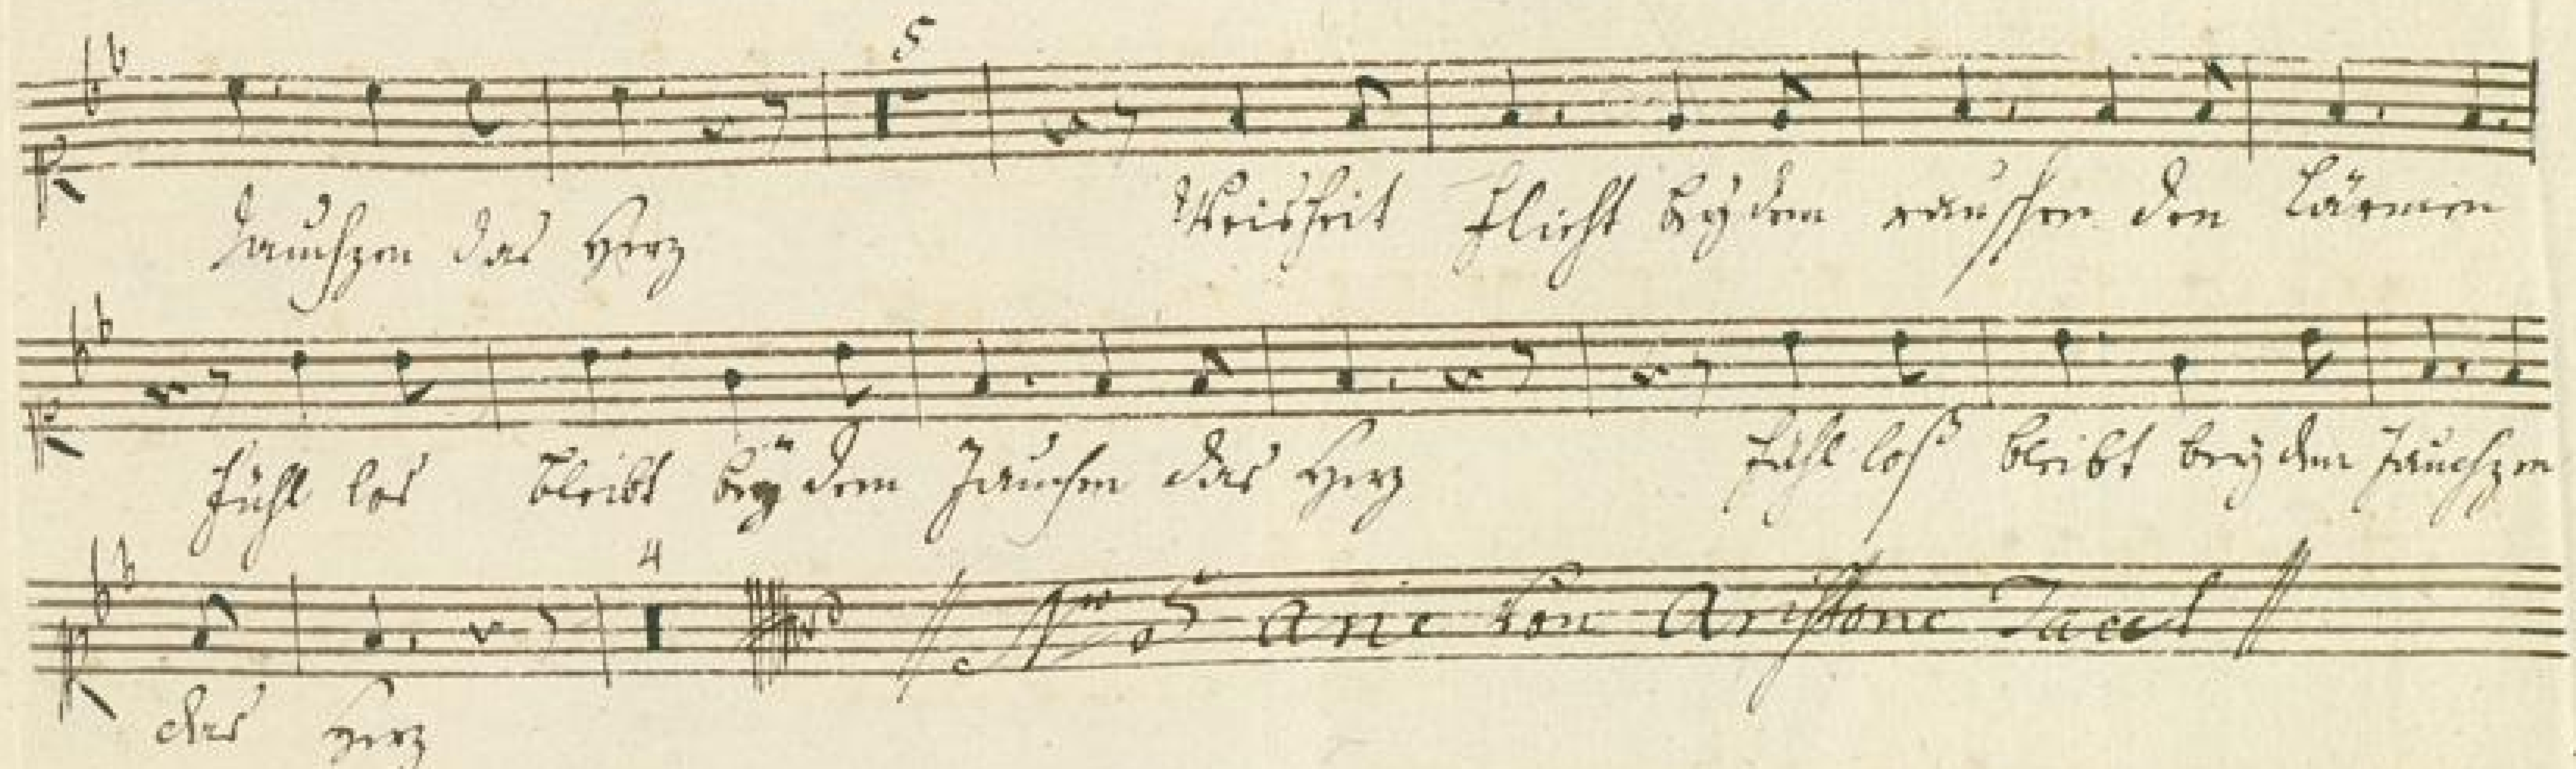 5
Jauchzen das Herz Weisheit flieht beÿ dem rauschen den Lärmen
4
fühl los bleibt beÿ dem Jauchen das Herz fühl loß bleibt beÿ dem Jauchzen
No 5 Arie von Aristone Tacet
das Herz